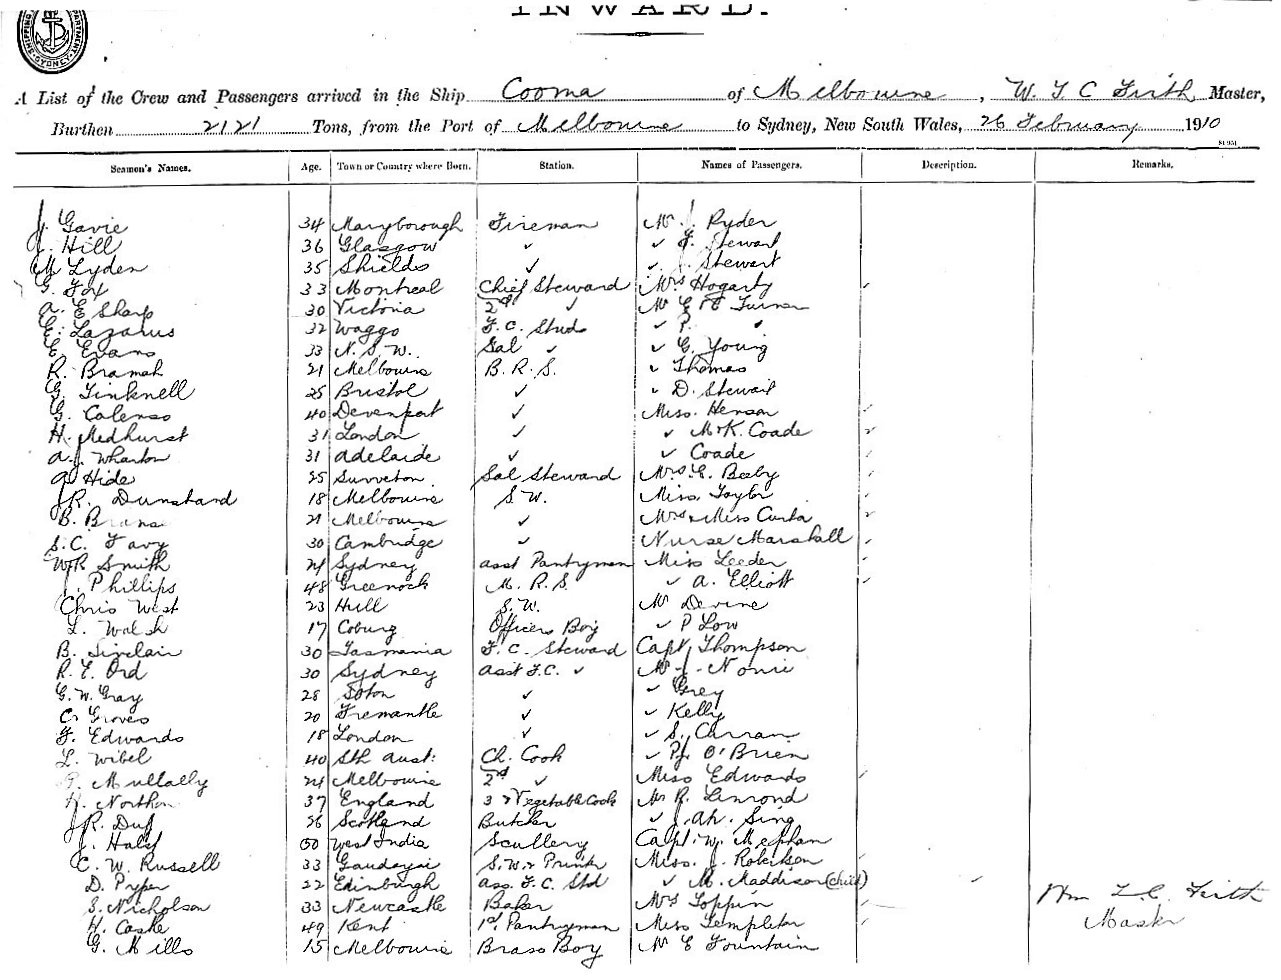 INWARD.
A List of the Crew and Passengers arrived in the Ship Cooma of Melbourne, W. T C Firth Master,
Burthen 2121 Tons, from the Port of Melbourne to Sydney, New South Wales, 26 February 1910
Seamen's Names. Age. Town or Country where Born. Station. Names of Passengers. Description. Remarks.
J. Gavie 34 Maryborough Fireman Mr J. Ryder
J. Hill 36 Glasgow ✓ ✓ J. Stewart
M Lyden 35 Shields ✓ ✓ J. Stewart
G. Fox 33 Montreal Chief Steward Mrs Hogarty
A. E Sharp 30 Victoria 2nd ✓ Mr G E Turner
E. Lazarus 32 Wagga F.C. Studs ✓ P. ✓
E Evans 33 N.S.W. Sal ✓ ✓ C. Young
R. Bramah 21 Melbourne B.R.S. ✓ Thomas
G. Tinknell 25 Bristol ✓ ✓ D. Stewart
G. Calenso 40 Devenport ✓ Miss. Henson
H. Medhurst 31 London ✓ ✓ McK. Coade
A.J. Wharton 31 Adelaide ✓ ✓ Coade
A Hide 25 Sal Steward Mrs E. Beely
J.R. Dunstard 18 Melbourne S.W. Miss Taylor
B. 21 Melbourne ✓ Mrs & Miss Curta
S.C. Favy 30 Cambridge ✓ Nurse Marshall
W.R Smith 24 Sydney Asst Pantryman Miss Leeder
J. Phillips 48 Greenock M.R.S. ✓ A. Elliott
Chris West 23 Hull S.W. Mr Devine
L. Walsh 17 Coburg Officers Boy ✓ P Low
B. Sinclair 30 Tasmania F.C. Steward Capt. Thompson
R.E. Ord 30 Sydney Asst F.C. ✓ Mr J. Norrie
G.W. Gray 28 Soton ✓ ✓ Grey
C. Groves 20 Fremantle ✓ ✓ Kelly
F. Edwards 18 London ✓ ✓ S. Curran
L. Wibel 40 Sth Aust: Ch. Cook ✓ P.J. O'Brien
P. Mullally 24 Melbourne 2nd ✓ Miss Edwards
H. Northn 37 England 3 & Vegetable Cook Mr R. Limrond
J.R. Duf 26 Scotland Butcher ✓ J. Ah. Sing
J. Haly 50 West India Scullery Capt. W. Mepham
C.W. Russell 33 S.W. & Miss. J. Robertson
D. Pryper 22 Edinburgh Ass. F.C. Std ✓ M. Maddison (child)
S. Nicholson 33 Newcastle Baker Mrs Toppin
H. Castle 49 Kent 1st Pantryman Miss Templeton
G. Mills 15 Melbourne Brass Boy Mr E Fountain
Wm T.C. Firth
Master